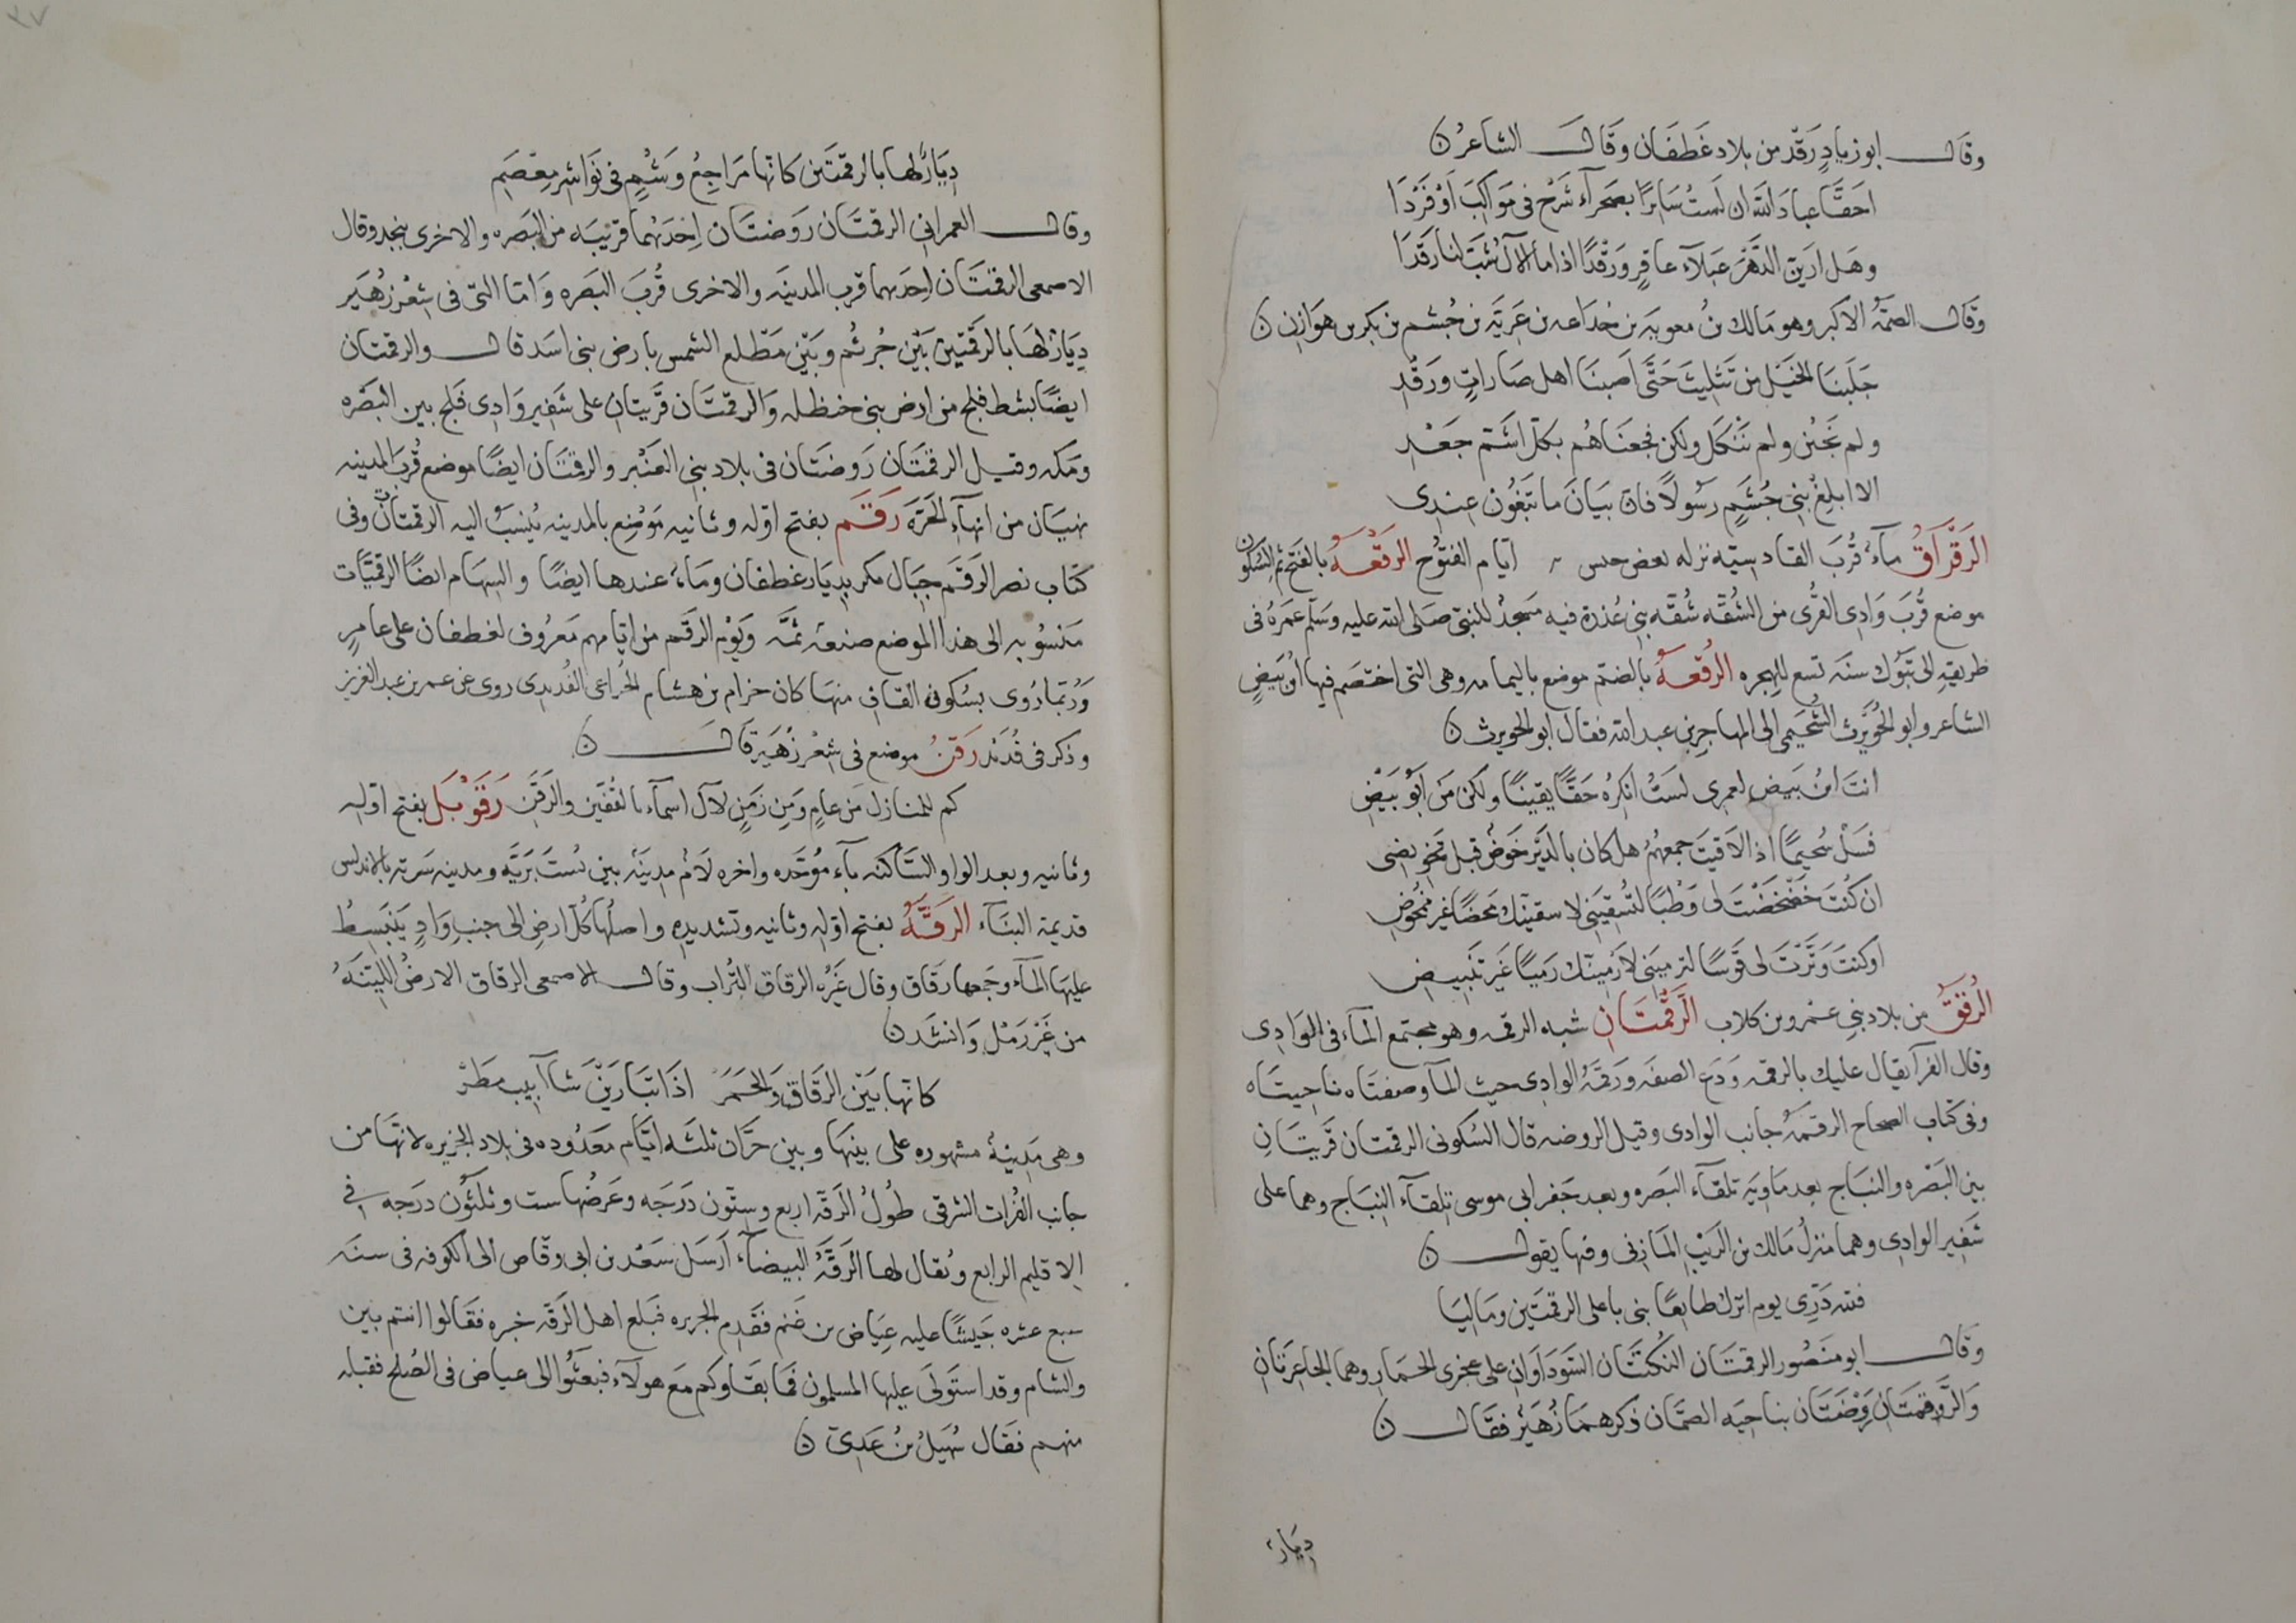 وقال ابو زياد رَقَد من بلاد غَطَفَان وَقَال الشاعرُ ن
احَقًّا عبادَ الله ان لَستُ سَايرًا بصَحرآء شَرْح فى مَوَاكبَ اَوْ فَرْدَا
وهَل ارَينّ الدَّهْرَ عَبلآء عاقرٍ وَرَقْدًا اذا ما الآل شَبّ لنا رَقدَا
وَقَال الصمّهُ الاكبر وهو مَالك بنُ معويه بن جداعه بن غَزيَّه بن جُشم بن بكر بن هوَازِن ن
جَلَبنَا الخيَل من تَثليثَ حَتَّى اَصَبنَا اهل صَاراتٍ ورَقدِ
ولم نَجبُن ولم نَنْكَل ولكن فجعنَاهُم بكلّ اشَمّ جَعْدِ
الا ابلغ بَنى جُشَمٍ رَسُولاً فانّ بيَانَ ما تبَغُون عِندِى
الرَقْرَاقُ مآءٌ قُربَ القادسيّه نزله بعض جيش ايّام الفتوُح الرَقْعَهُ بالفَتح ثم السُّكون
موضع قُربَ وَادِى القُرى من الشُقّه شُقّه بنى عُذرة فيه مَسجدٌ للنبىّ صَلى الله عليه وَسَلم عمَرهُ فى
طريقهِ الى تَبوُك سنَه تسع للهِجره الرُقعَهُ بالضم موضع باليمامه وهى التى اختَصَم فيها ابن بَيضٍ
الشاعر وابو الحُوَيْرث السُّحَيمى الى المهاجِر بن عبد الله فقال ابو الحويرث ن
انتَ ابنُ بَيضٍ لعمرى لَستُ انكرُه حَقًّا يقينًا ولكن مَن اَبُو بَيْضِ
فسَلْ سُحيمًا اذا لاقيَتَ جمعهُم هل كان بالدَيْر خَوَضٌ قبلَ تَخويضى
ان كُنتَ خَضْخضتَ لى وَطْبًا لتُسقيَنى لاسقينّك مَحضًا غير ممخُوض
اَو كنتَ وَتَّرْتَ لى قَوسًا لترميَنى لاَرْمينّك رَميًا غَير تَنْبيض
الرُقَقُ من بلاد بنى عَمرو بن كلاب الرَقْمَتَانِ شبه الرقمه وهو مجتمع المآء فى الوَادِى
وقال الفرآء يقال عليك بالرقمه وَدَع الضفه وَرقمةُ الوادى حيث المآ وضفتاه ناحيتاه
وفى كتاب الصحاح الرقمَهُ جانب الوادى وقيل الروضه قال السُّكونى الرقمتان قَريَتَانِ
بين البَصْره والنبَاج بعد مَاويَه تلقآء البَصره وبعد حَفر ابى موسى تلقآء النبَاج وهما على
شَفِير الوادِى وهما منزلُ مَالك بن الرَيْب المَازِنى وفيها يقول ن
فلله دَرِّى يوم اترك طايعًا بنىّ باعلى الرقمتَين ومَاليَا
وَقَال ابو منَصُور الرقمتَان النكُتتَان السَّودَاوَانِ على عجزى الحمَار وهما الجاعرَتانِ
وَالرَّقمتَان رَوْضَتَان بناحيَه الصمَّان ذكرهمَا زُهَيْرٌ فقَال ن
دِيَارٌ
دِيَارٌ لها بالرقمتَين كانّها مَرَاجِعُ وَشْمٍ فى نَوَاشِر مِعْصَمِ
وقال العمرانى الرقمتَان رَوضتَان اِحدَيُهمَا قريَبه من البَصَره والاخرى بنجد وقال
الاصمعى الرقمتَان احدَيهما قرب المدينَه والاخرى قُربَ البَصَره وَامّا التى فى شِعْر زُهَير
دِيَارٌ لهَا بالرَقمتَيِن بَيْن جُرثُم وبَيْن مَطّلع الشمس بارض بنى اسَد قال والرقمَتان
ايضًا بشط فلج من ارض بنى حنظله وَالرقمتَان قريَتانِ على شَفِير وَادِى فَلج بين البَصْره
ومَكه وقيل الرقمتَان رَوضتَان فى بلاد بنى العَنْبر والرقمتَان ايضًا موضع قُربَ المدينه
نهيَان من انهآء الحَرّه رَقَم بفتح اوّله وثانيه مَوْضِع بالمدينه يُنسَبُ اليه الرقميّات وفى
كتاب نصر الرَقَم جِبَال مكر بديَار غطفان ومَاءٌ عندها ايضًا والسهَام ايضًا الرقميَّات
مَنسُوبه الى هذا الموضع صنعهٌ ثَمّه وَيَوْم الرقَم من ايّامهم مَعَرُوف لغطفان على عامرٍ
وَرُبَّما رُوى بسُكون القاف منهَا كان حزام بن هشام الخُزاعى القُديدى روى عن عمر بن عبد العزيز
وذكر فى قُدَيْد رَقَنُ موضع فى شِعْر زُهَير قَال ن
كم للمنازل مَن عامٍ وَمن زَمنٍ لآل اسمآء بالقُفَّين والرَقَن رَقَوْبَل بفتح اوّله
وثانيه وبعد الواو السَّاكنه بآء مُوَحّده واخره لاَمٌ مدينَهٌ بين شنتَ بَريَّه ومدينه سَرته بالاندلس
قديمَة البنَآء الرَقَّهُ بفتح اوّله وثانيه وتَشديده واصلُهَا كُلّ ارضٍ الى جنبِ وَادٍ يَنبَسِطُ
عليهَا المآء وجَمعها رقَاق وقال غَيرُه الرقاق التُّراب وقال الاصمعى الرقاق الارضُ الليّنَهُ
من غَيْر رَمْل وَانشَد ن
كانّها بَيْن الرَقاق والخَمَرْ اذا تبَارَيْن شآبيب مطَرْ
وهى مَدينهٌ مشهوره على بينهَا وبين حَرَّان ثلثَه ايّام مَعدُوده فى بلاد الجزيره لانّها من
جانب الفُرات الشرقى طُولُ الرَقّه اربع وستّون دَرَجَه وعَرضُها ست وثلثوُن دَرَجه فى
الاقليم الرابع وَيُقال لهَا الرَقّهُ البيضآء اَرسَل سَعْد بن ابى وقّاص الى الكوفه فى سنَه
سبع عشره جَيشًا عليه عِيَاض بن غَنم فقَدِم الجزيره فَبلغ اهل الرَقّه خبره فقَالوا انتم بين
والشام وقد استَولَى عليها المسلمون فما بقَاوكم مَع هولآء فبعَثُوا الى عياض فى الصُلح فقبله
منهم فقَال سُهَيلُ بنُ عَدِىّ ن